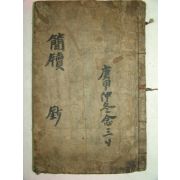 簡牘 鈔
庚申仲冬念三日